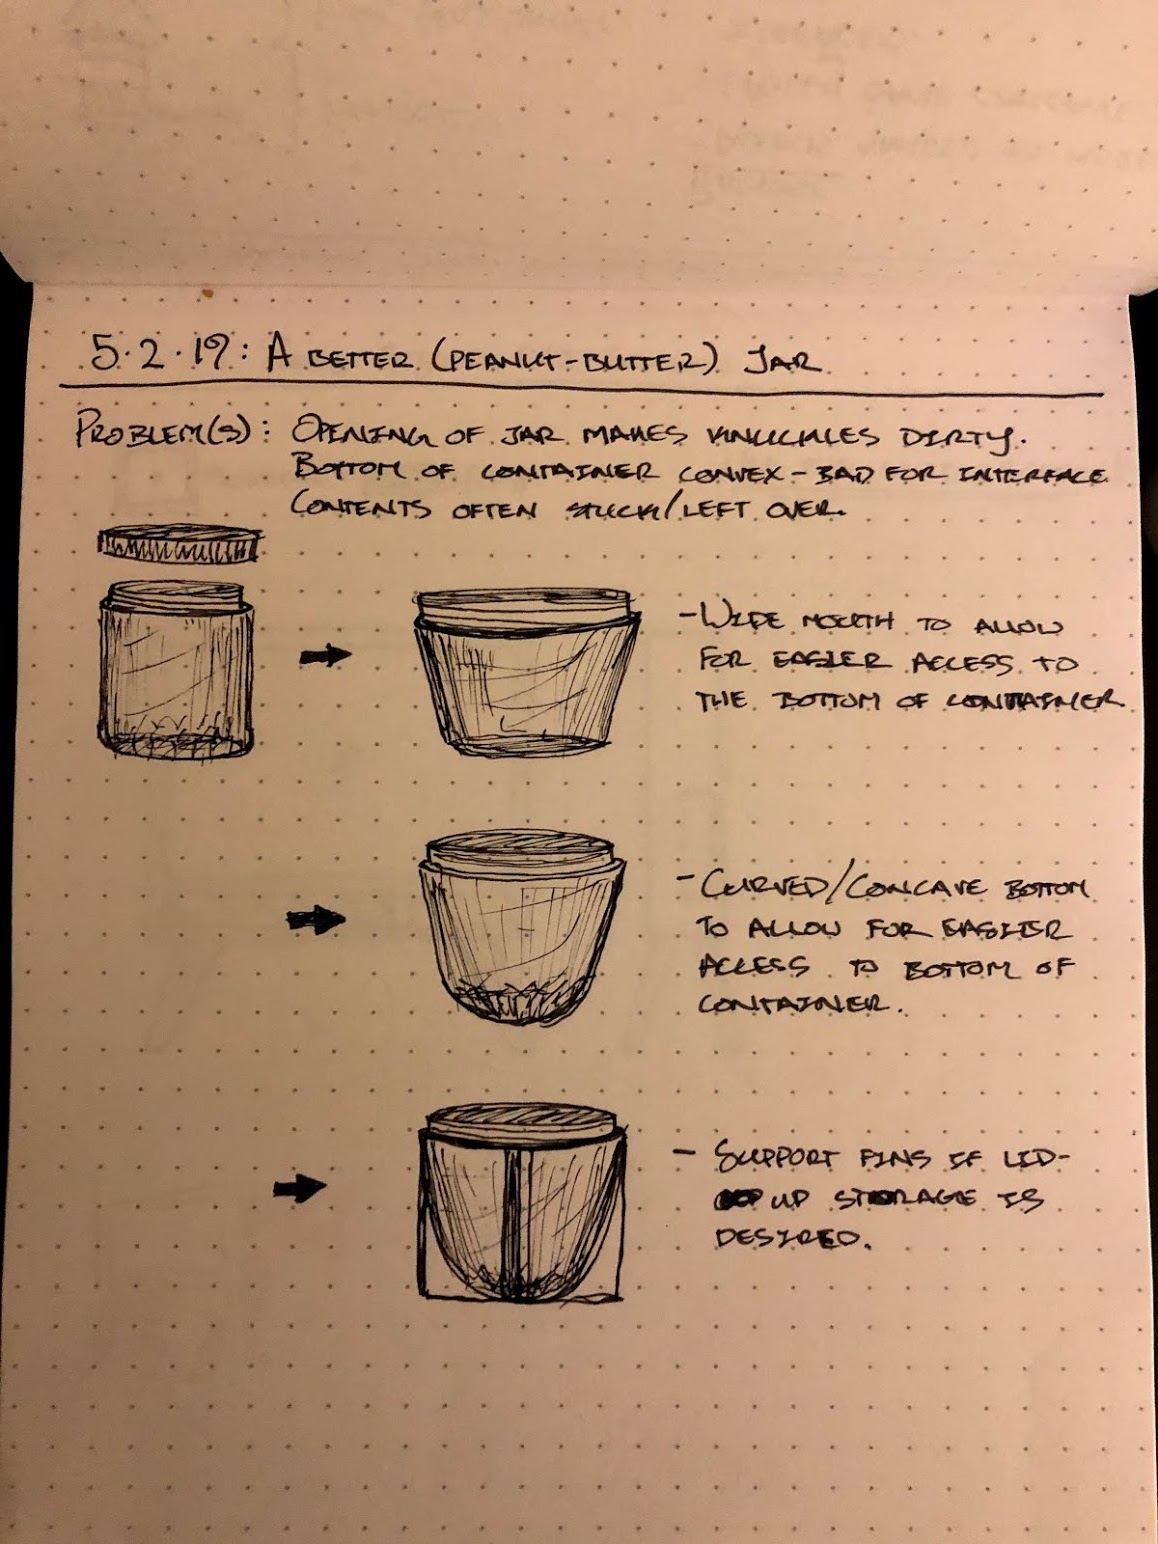 5.2.19: A BETTER (PEANUT-BUTTER) JAR
PROBLEM(S): OPENING OF JAR MAKES KNUCKLES DIRTY.
BOTTOM OF CONTAINER CONVEX - BAD FOR INTERFACE
CONTENTS OFTEN STUCK/LEFT OVER.
- WIDE MOUTH TO ALLOW
FOR EASIER ACCESS TO
THE BOTTOM OF CONTAINER
- CURVED/CONCAVE BOTTOM
TO ALLOW FOR EASIER
ACCESS TO BOTTOM OF
CONTAINER.
- SUPPORT FINS IF LID-
UP STORAGE IS
DESIRED.